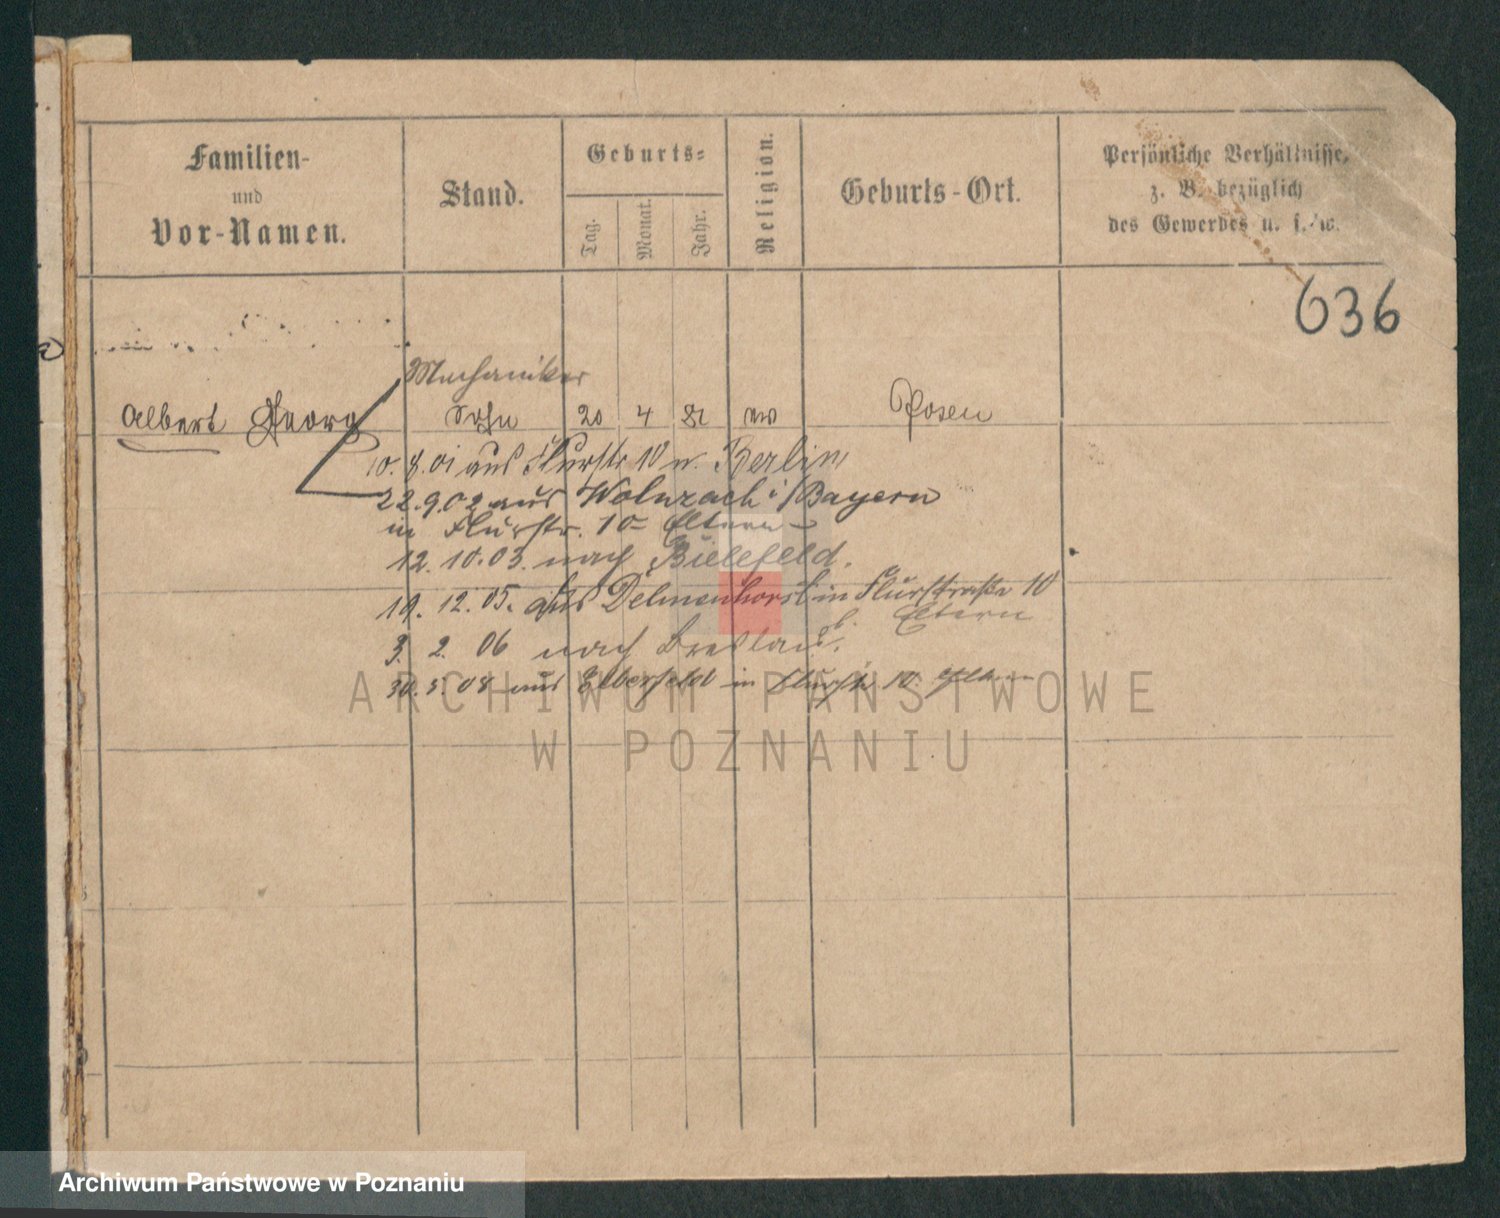 Familien-
und
Vor-Namen.
Stand.
Geburts-
Tag.
Monat.
Jahr.
Religion.
Geburts-Ort.
Persönliche Verhältnisse,
z. B. bezüglich
des Gewerbes u. s. w.
636
Mechaniker
Albert Georg Sohn 20 4 82 Posen
10. 8. 01 aus Flurstr 10 n. Berlin
22. 9. 02 aus Wolnzach i/Bayern
in Flurstr. 10 Eltern
12. 10. 03. nach Bielefeld.
19. 12. 05. aus Delmenhorst in Flurstraße 10
Eltern
3. 2. 06 nach Breslau
30. 5. 08 aus Elberfeld in Flurstr 10. Eltern
ARCHIWUM PAŃSTWOWE
W POZNANIU
Archiwum Państwowe w Poznaniu